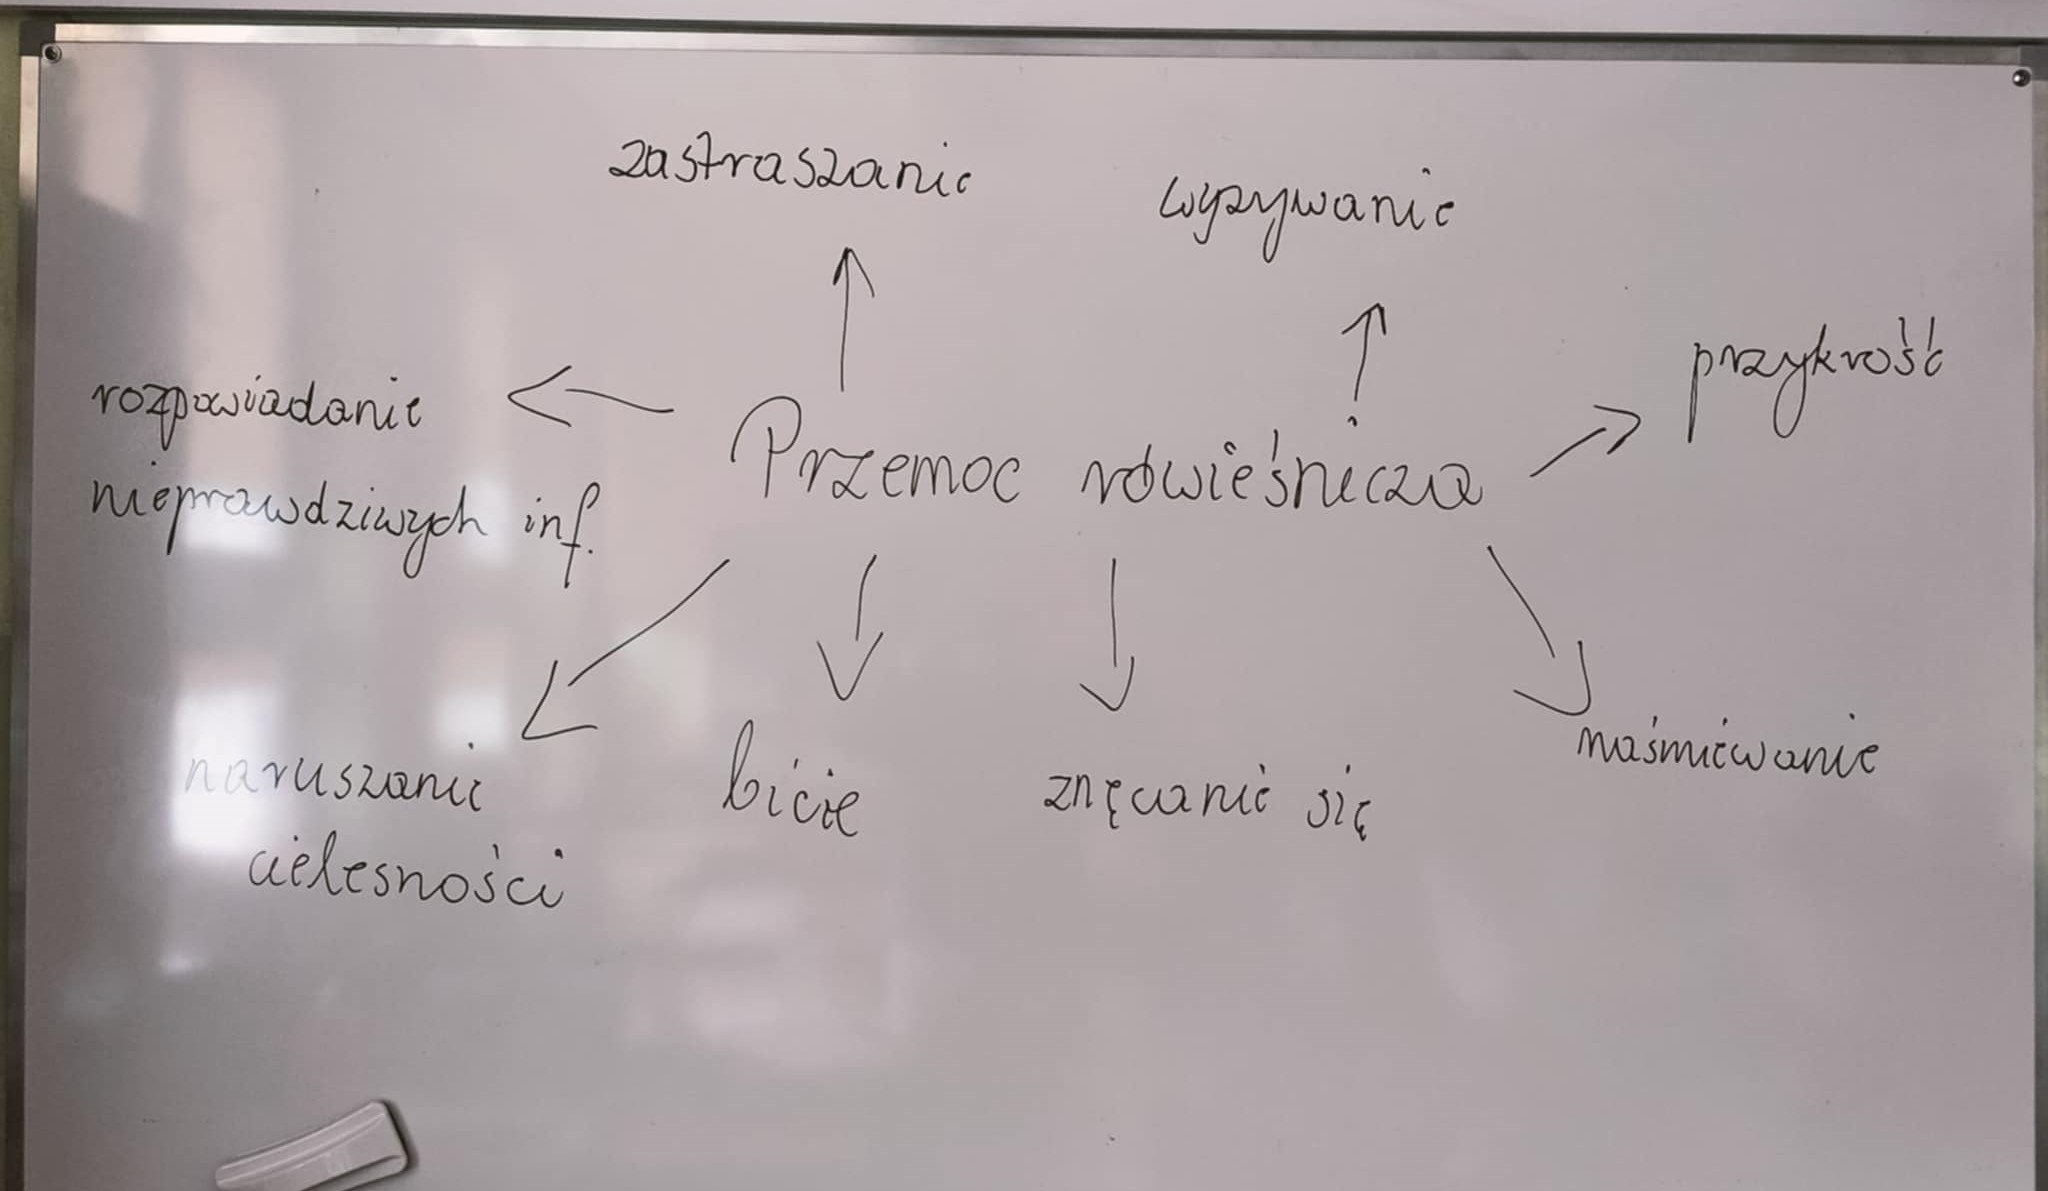 zastraszanie
wyzywanie
przykrość
rozpowiadanie
nieprawdziwych inf.
Przemoc rówieśnicza
naruszanie
cielesności
bicie
znęcanie się
naśmiewanie